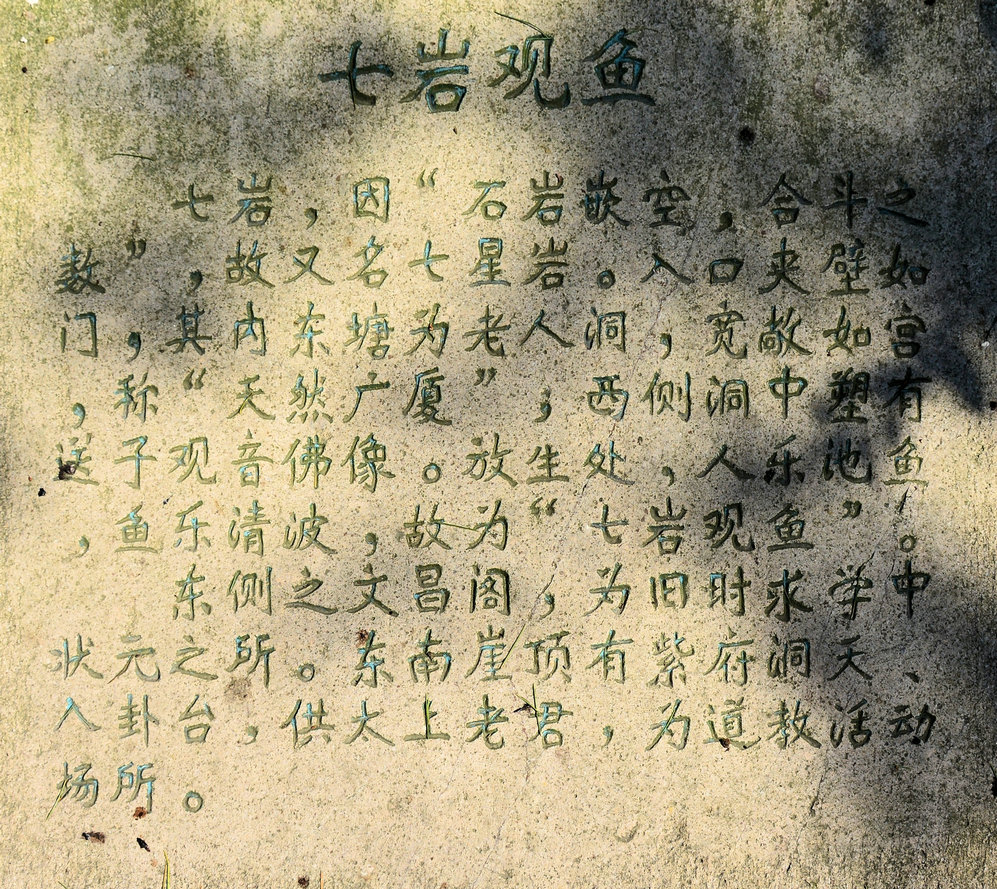 七岩观鱼
七岩，因“石岩嵌空，合斗之
数”，故又名七星岩。入口夹壁如
门，其内东塘为老人洞，宽敞如宫
，称“天然广厦”；西侧洞中塑有
送子观音佛像。放生处，人乐池鱼
，鱼乐清波，故为“七岩观鱼”。
东侧之文昌阁，为旧时求学中
状元之所。东南崖顶有紫府洞天、
八卦台，供太上老君，为道教活动
场所。